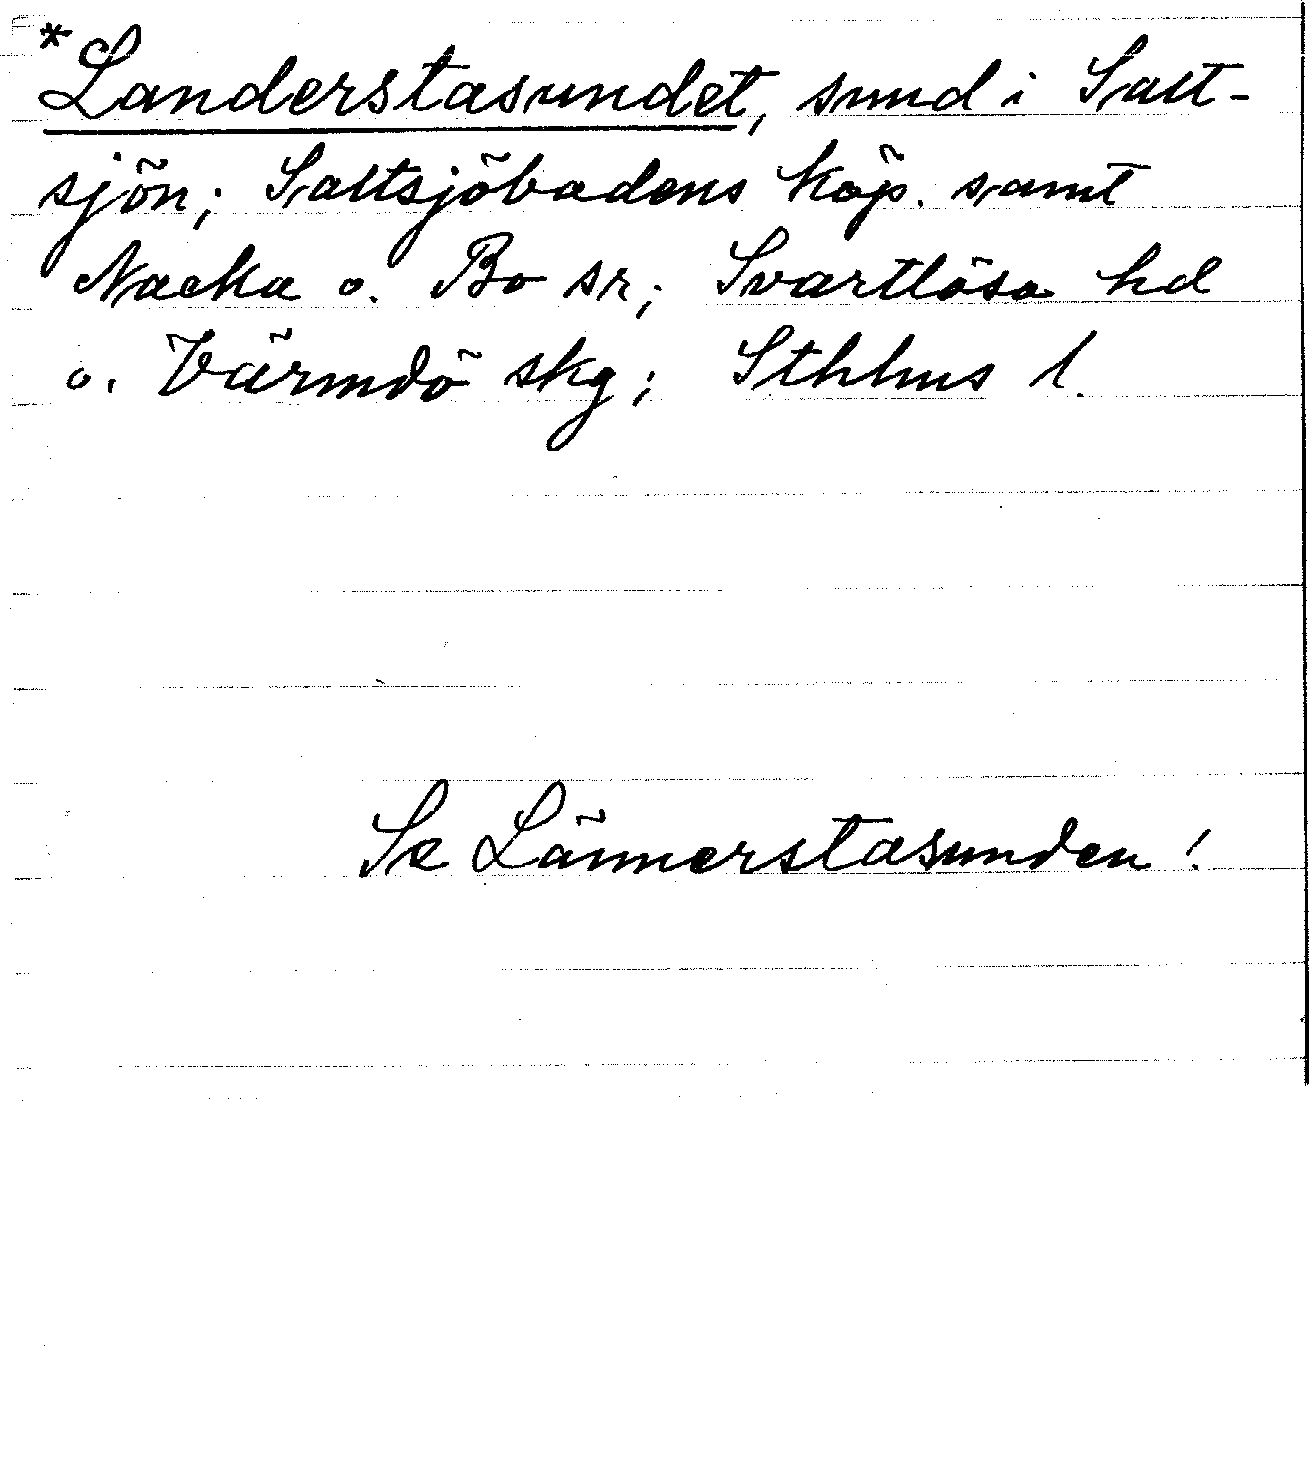 *Landerstasundet, sund i Salt-
sjön; Saltsjöbadens köp. samt
Nacka o. Bo sr; Svartlösa hd
o. Värmdö skg; Sthlms l.
Se Lännerstasunden!